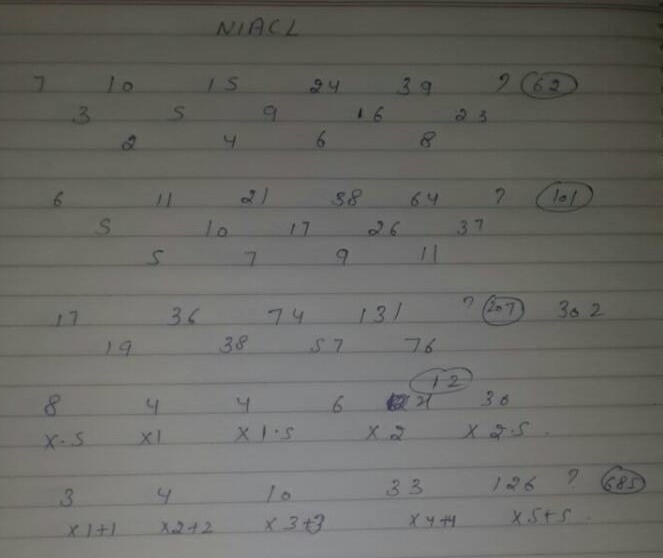 NIACL
7 10 15 24 39 ? 62
3 5 9 16 23
2 4 6 8
6 11 21 38 64 ? 101
5 10 17 26 37
5 7 9 11
17 36 74 131 ? 207 302
19 38 57 76
12
8 4 4 6 30
x.5 x1 x1.5 x2 x2.5
3 4 10 33 126 ? 685
x1+1 x2+2 x3+3 x4+4 x5+5